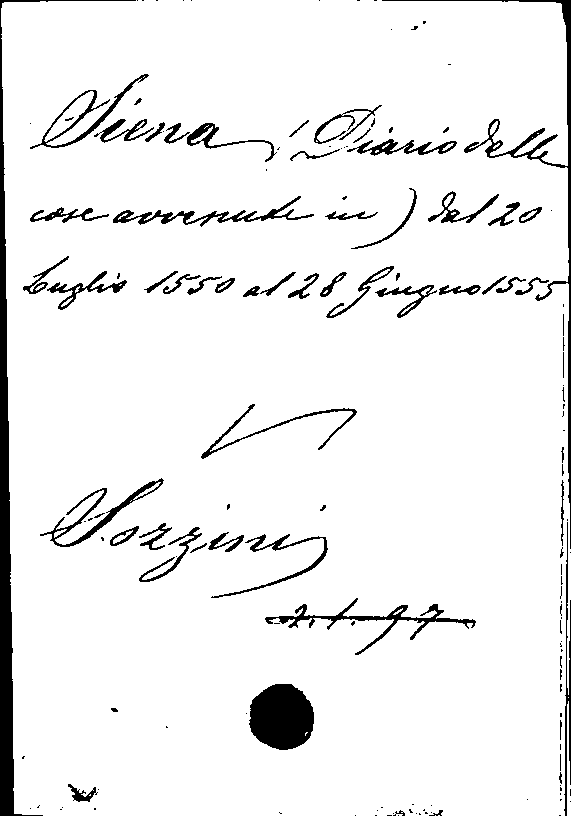 Siena (Diario delle
cose avvenute in) dal 20
Luglio 1550 al 28 Giugno 1555
V
Sozzini
2.1.97